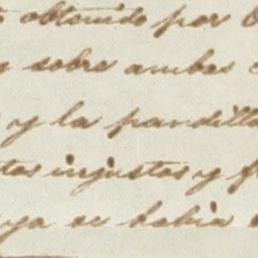 obtenido por
sobre ambas
y la pandilla
tas injustas y
ya se habia